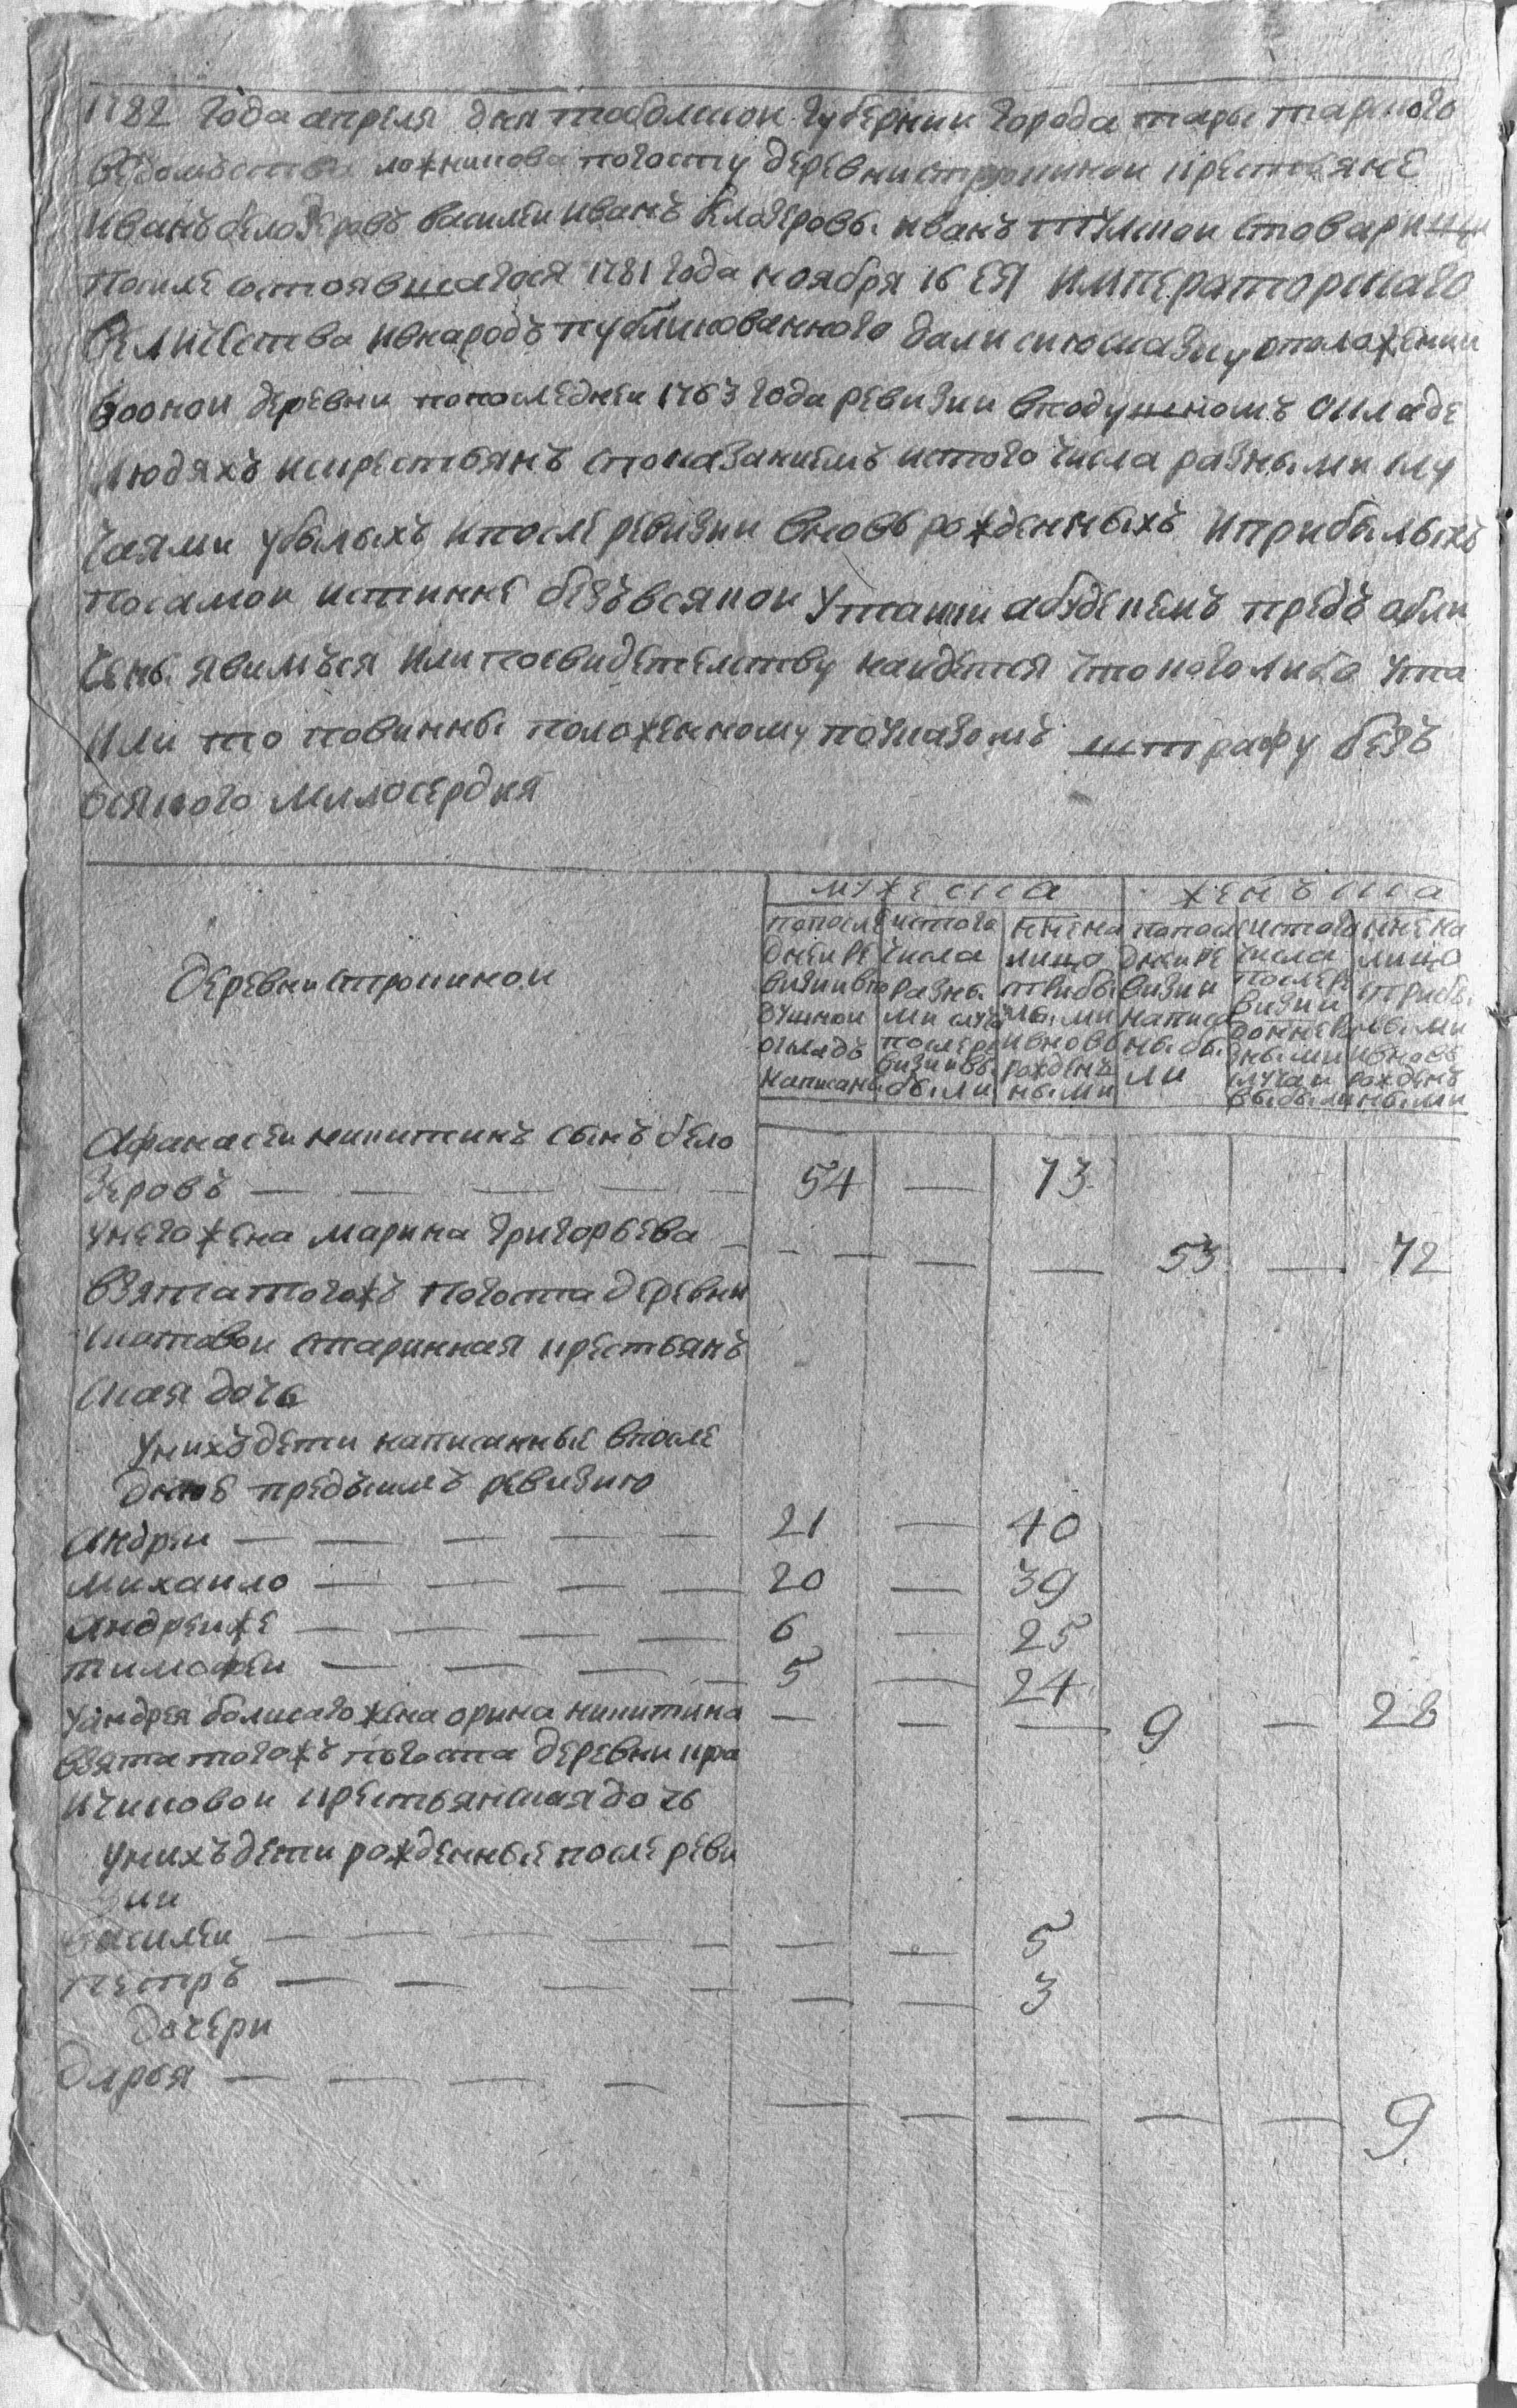 1782 года апреля дня таболской губернии города тары тарского
ведомъства ложникова погосту деревни строкиной крестьяне
Иванъ белозеровъ василеи иванъ белозеровы иванъ стоварищи
после состоявшагося 1781 года ноября 16 ея императорскаго
величества ивнародъ публикованного дали сию скаску о положении
воонои деревни попоследнеи 1763 года ревизии вподушномъ окладе
людяхъ искрестьянъ споказаниемъ истого числа разными слу
чаями убылыхъ ипосле ревизии вновь рожденныхъ иприбылыхъ
посамои истинне безъвсякои утаики абуде кемъ предъ обли
чены явимъся или посвидетелству наидется что кого либо ута
или то повинны положенному поуказомъ штрафу безъ
всякого милосердия
деревни строкинои
мужеска женъска
попосле днеи ре визии впо душнои окладъ написаны
истого числа разны ми случа после ре визии вы были
ннена лицо сприбы лыми ивновь рожденъ ными
попосл днеи ре визии написа ны бы ли
истого числа после ре визии разными случаи выбыли
ннена лицо сприбы лыми ивновь рожденъ ными
Афанасеи никитинъ сынъ бело
зеровъ — — — — — 54 — 73
унего жена марина григорьева — — — — — 53 — 72
взята тогожъ погоста деревни
скатовои старинная крестьянъ
ская дочь
унихъ дети написанные впосле
днюю предъсимъ ревизию
Андреи — — — — — 21 — 40
михаило — — — — 20 — 39
андреиже — — — — 6 — 25
тимофеи — — — — 5 — 24
уандрея болшаго жена орина никитина — — — 9 — 28
взята тогожъ погоста деревни кра
ичиковои крестьянская дочь
унихъ дети рожденные после реви
зии
василеи — — — — — — — 5
петръ — — — — — — 3
дочери
дарья — — — — — — — — — 9